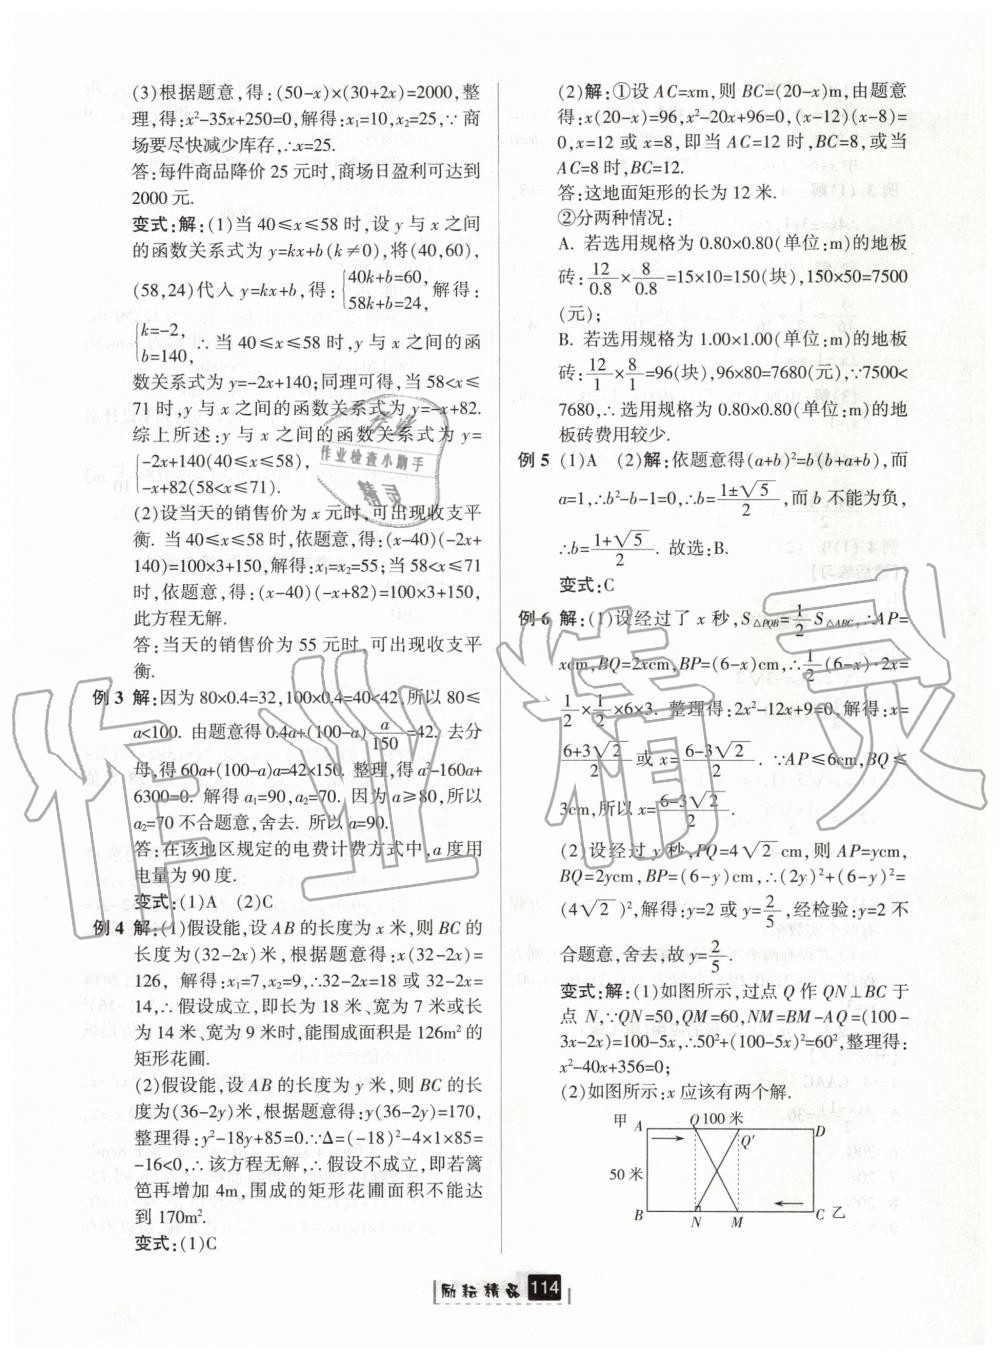 (3)根据题意,得:(50-x)×(30+2x)=2000,整
理,得:x²-35x+250=0,解得:x₁=10,x₂=25,∵商
场要尽快减少库存,∴x=25.
答:每件商品降价 25 元时,商场日盈利可达到
2000 元.
变式:解:(1)当 40≤x≤58 时,设 y 与 x 之间
的函数关系式为 y=kx+b(k≠0),将(40,60),
(58,24)代入 y=kx+b,得:{40k+b=60, 58k+b=24,解得:
{k=-2, b=140,∴当 40≤x≤58 时,y 与 x 之间的函
数关系式为 y=-2x+140;同理可得,当 58<x≤
71 时,y 与 x 之间的函数关系式为 y=-x+82.
综上所述:y 与 x 之间的函数关系式为 y=
{-2x+140(40≤x≤58),
-x+82(58<x≤71).
(2)设当天的销售价为 x 元时,可出现收支平
衡. 当 40≤x≤58 时,依题意,得:(x-40)(-2x+
140)=100×3+150,解得:x₁=x₂=55;当 58<x≤71
时,依题意,得:(x-40)(-x+82)=100×3+150,
此方程无解.
答:当天的销售价为 55 元时,可出现收支平
衡.
例 3 解:因为 80×0.4=32,100×0.4=40<42,所以 80≤
a<100. 由题意得 0.4a+(100-a)a/150=42. 去分
母,得 60a+(100-a)a=42×150. 整理,得 a²-160a+
6300=0. 解得 a₁=90,a₂=70. 因为 a≥80,所以
a₂=70 不合题意,舍去. 所以 a=90.
答:在该地区规定的电费计费方式中,a 度用
电量为 90 度.
变式:(1)A (2)C
例 4 解:(1)假设能,设 AB 的长度为 x 米,则 BC 的
长度为(32-2x)米,根据题意得:x(32-2x)=
126, 解得:x₁=7,x₂=9,∴32-2x=18 或 32-2x=
14,∴假设成立,即长为 18 米、宽为 7 米或长
为 14 米、宽为 9 米时,能围成面积是 126m² 的
矩形花圃.
(2)假设能,设 AB 的长度为 y 米,则 BC 的长
度为(36-2y)米,根据题意得:y(36-2y)=170,
整理得:y²-18y+85=0.∵Δ=(-18)²-4×1×85=
-16<0,∴该方程无解,∴假设不成立,即若篱
笆再增加 4m,围成的矩形花圃面积不能达
到 170m².
变式:(1)C
(2)解:①设 AC=xm,则 BC=(20-x)m,由题意
得:x(20-x)=96,x²-20x+96=0,(x-12)(x-8)=
0,x=12 或 x=8,即当 AC=12 时,BC=8,或当
AC=8 时,BC=12.
答:这地面矩形的长为 12 米.
②分两种情况:
A. 若选用规格为 0.80×0.80(单位:m)的地板
砖:12/0.8×8/0.8=15×10=150(块),150×50=7500
(元);
B. 若选用规格为 1.00×1.00(单位:m)的地板
砖:12/1×8/1=96(块),96×80=7680(元),∵7500<
7680,∴选用规格为 0.80×0.80(单位:m)的地
板砖费用较少.
例 5 (1)A (2)解:依题意得(a+b)²=b(b+a+b),而
a=1,∴b²-b-1=0,∴b=(1±√5)/2,而 b 不能为负,
∴b=(1+√5)/2. 故选:B.
变式:C
例 6 解:(1)设经过了 x 秒,S△PQB=1/2 S△ABC,∴AP=
xcm,BQ=2xcm,BP=(6-x)cm,∴1/2(6-x)·2x=
1/2×1/2×6×3. 整理得:2x²-12x+9=0,解得:x=
(6+3√2)/2 或 x=(6-3√2)/2. ∵AP≤6cm,BQ≤
3cm,所以 x=(6-3√2)/2.
(2)设经过 y 秒,PQ=4√2cm,则 AP=ycm,
BQ=2ycm,BP=(6-y)cm,∴(2y)²+(6-y)²=
(4√2)²,解得:y=2 或 y=2/5,经检验:y=2 不
合题意,舍去,故 y=2/5.
变式:解:(1)如图所示,过点 Q 作 QN⊥BC 于
点 N,∵QN=50,QM=60,NM=BM-AQ=(100-
3x-2x)=100-5x,∴50²+(100-5x)²=60²,整理得:
x²-40x+356=0;
(2)如图所示:x 应该有两个解.
甲 A Q 100 米 D
Q′
50 米
B N M C 乙
励耘精品 114
作业
作业检查小助手
精灵
作业精灵